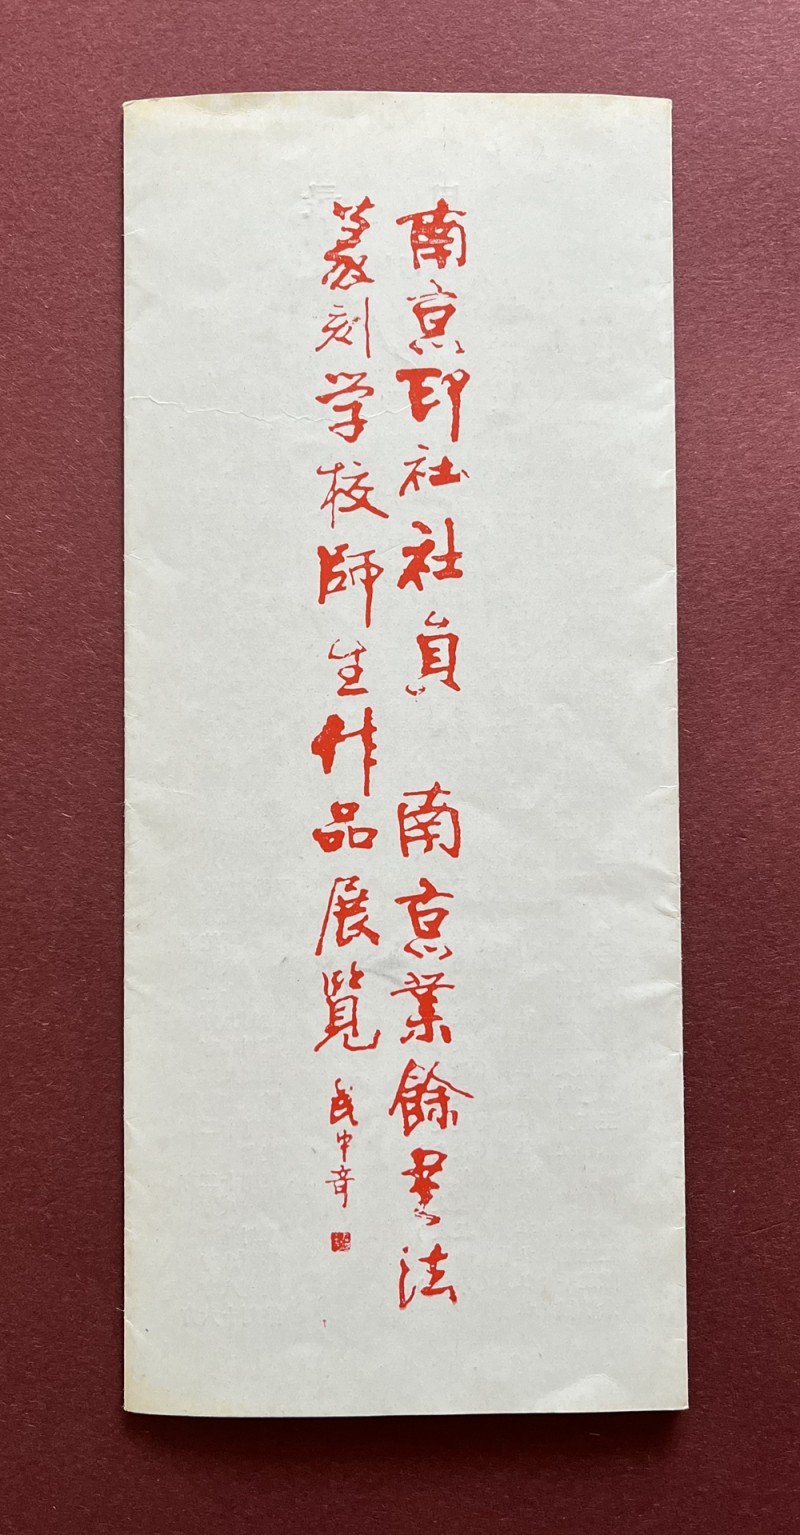 南京印社社員 南京業餘書法
篆刻学校師生作品展覽
武中奇